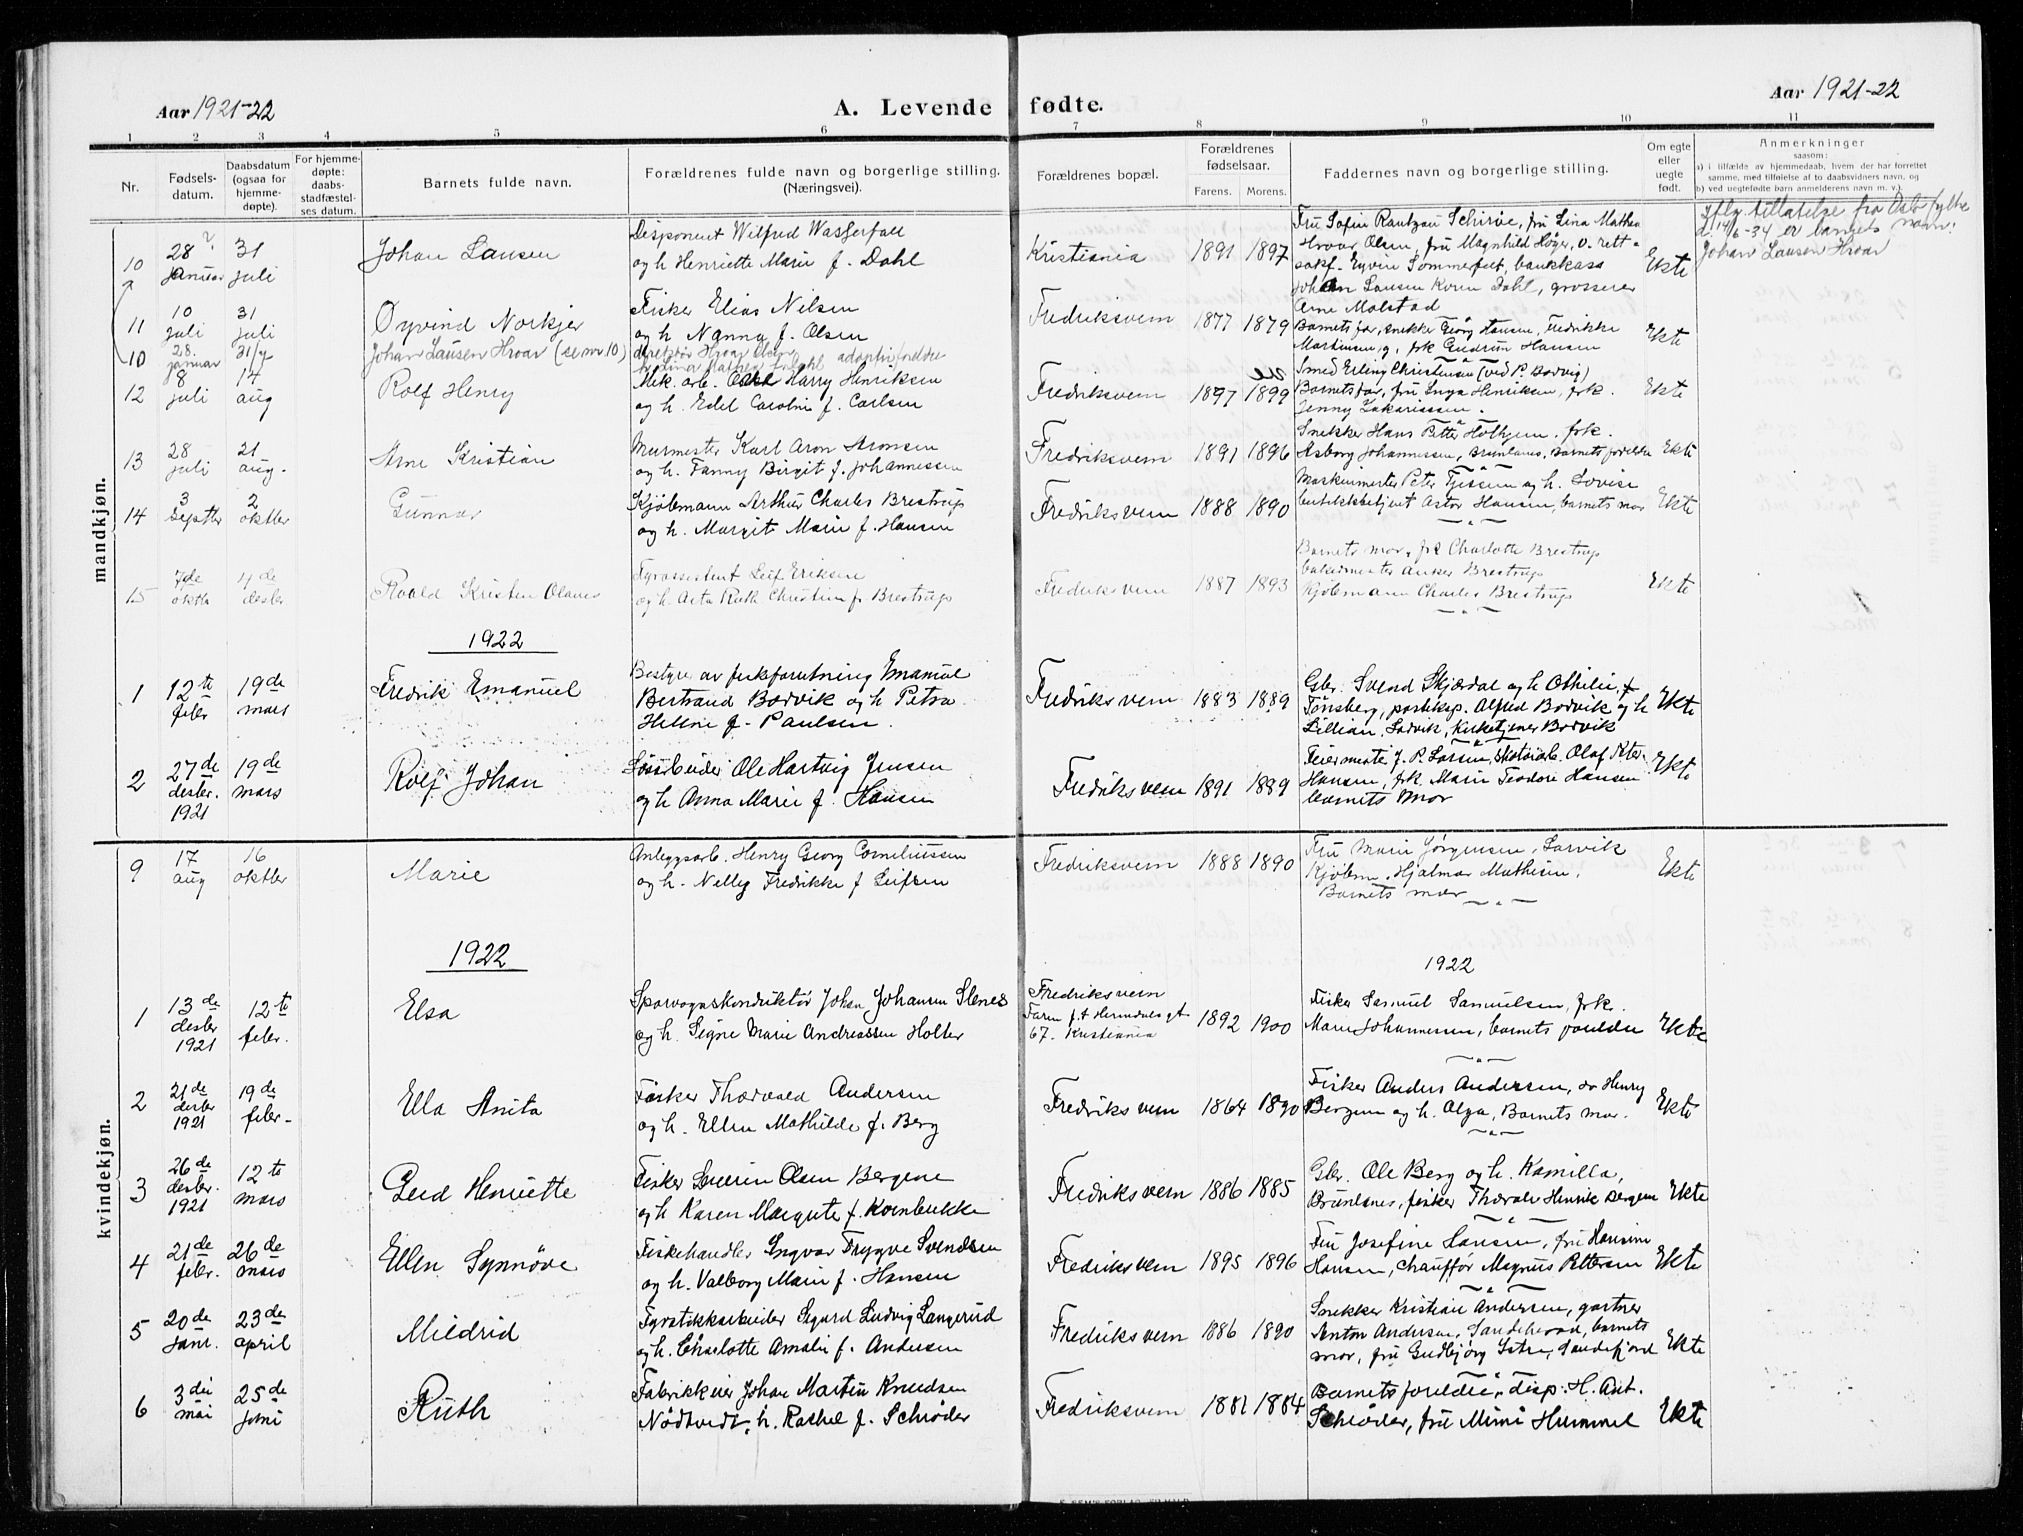 Aar 1921-22
A. Levende fødte.
Aar 1921-22
1 2 3 4 5 6 7 8 9 10 11
Nr.
Fødsels-
datum.
Daabsdatum
(ogsaa for
hjemme-
døpte).
For hjemme-
døpte:
daabs-
stadfæstel-
ses datum.
Barnets fulde navn.
Forældrenes fulde navn og borgerlige stilling.
(Næringsvei).
Forældrenes bopæl.
Forældrenes
fødselsaar.
Farens. Morens.
Faddernes navn og borgerlige stilling.
Om egte
eller
uegte
født.
Anmerkninger
saasom:
a) i tilfælde av hjemmedaab, hvem der har forrettet
samme, med tilføielse af to daabsvidners navn, og
b) ved uegtefødte barn anmelderens navn m. v.)
mandkjøn.
10
28 ?
januar
31
juli
Johan Lausen
Disponent Wilfred Wasserfall
og h Henriette Marie f. Dahl
Kristiania
1891 1897
Fru Sofie Rantzau Schirøe, fru Lina Mathea
Hroar Olsen, fru Magnhild Høyer, o. rett-
sakf. Eyvin Sommerfelt, bankkass
Johan Lausen Koren Dahl, grosserer
Arne Malstad
Ekte
Iflg. tillatelse fra Oslo fylke
d. 14/6-34 er barnets navn:
Johan Lausen Hroar
11
10
juli
31
juli
Øyvind Norkjer
Fisker Elias Nilsen
og h Nanna f. Olsen
Fredriksvern
1877 1879
Barnets far, snekker Georg Hansen, Fredrikke
Martinsen, g, frk Gudrun Hansen
Ekte
10
28.
januar
31/7
Johan Lausen Hroar (se nr. 10)
direktør Hroar Olsen
adoptivforeldre
12
8
juli
14
aug
Rolf Henry
Mek. arb. Harry Henriksen
og h. Edel Caroline f. Carlsen
Fredriksvern
1897 1899
Smed Erling Christensen (ved P. Bodvig)
Barnets far, fru Inga Henriksen, frk.
Jenny Zakariassen.
Ekte
13
28
juli
21
aug.
Arne Kristian
Murmester Karl Aron Aronsen
og h. Fanny Birgit f. Johannessen
Fredriksvern
1891 1896
Snekker Hans Petter Holtjem. frk.
Asborg Johannessen, Brunlanes, barnets foreldre
Ekte
14
3
septbr
2
oktber
Gunnar
Kjøbmann Arthur Charles Brestrup
og h. Margit Marie f. Hansen
Fredriksvern
1888 1890
Maskinmester Peter Tjessem og h. Lovise
butikkbetjent Astor Hansen, barnets mor
Ekte
15
7de
oktbr
4de
desber
Roald Kristen Olaves
Fyrassistent Leif Eriksen
og h. Asta Ruth Christine f. Brestrup
Fredriksvern
1887 1893
Barnets mor, frk Charlotte Brestrup
bakermester Anker Brestrup
Kjøbmann Charles Brestrup
Ekte
1922
1
12te
febr
19de
mars
Fredrik Emanuel
Bestyrer av fiskforretning Emanuel
Bertrand Bodvik og h Petra
Helene f. Paulsen.
Fredriksvern
1883 1889
Gbr. Svend Skjærdal og h Othilie, f
Tønsberg, posteksp. Alfred Bodvik og h
Lillian, Larvik, Kirketjener Bodvik
Ekte
2
27de
desbr.
1921
19de
mars
Rolf Johan
Løsarbeider Ole Hartvig Jensen
og h Anna Marie f. Hansen
Fredriksvern
1891 1889
Feiermester J. P. Larsen, skotøiarb. Olaf Peter
Hansen, frk. Marie Teodore Hansen
barnets mor
Ekte
kvindekjøn.
9
17
aug
16
oktber
Marie
Anleggsarb. Henry Georg Corneliussen
og h. Nelly Fredrikke f Leifsen
Fredriksvern
1888 1890
Fru Marie Jørgensen, Larvik
Kjøbm. Hjalmar Mathisen,
Barnets mor
Ekte
1922
1922
1
13de
desbr
1921
12te
febr.
Elsa
Sporvognskonduktør Johan Johansen Stenes
og h. Signe Marie Andreassen Holter
Fredriksvern
Faren f.t Herndals gt
67. Kristiania
1892 1900
Fisker Samuel Samuelsen, frk.
Marie Johannesen, barnets foreldre
Ekte
2
21de
desbr
1921
19de
febr.
Ella Anita
Fisker Thorvald Andersen
og h. Ellen Mathilde f. Berg
Fredriksvern
1864 1890
Fisker Anders Andersen, do Henry
Bergem og h. Olga, Barnets mor.
Ekte
3
26de
desbr.
1921
12te
mars
Gerd Henriette
Fisker Severin Olsen Bergene
og h Karen Margrete f. Kornbukke
Fredriksvern
1886 1885
Gbr. Ole Berg og h. Kamilla,
Brunlanes, fisker Thorvald Henrik Bergem
Ekte
4
21de
febr.
26de
mars
Ellen Synnøve
Fiskehandler Ingvar Trygve Svendsen
og h. Valborg Marie f. Hansen
Fredriksvern
1895 1896
Fru Josefine Hansen, fru Hansine
Hansen, chauffør Magnus Pettersen
Ekte
5
20de
janr.
23de
april
Mildrid
Fyrstikkarbeider Sigurd Ludvig Langerud
og h. Charlotte Amalie f. Andersen
Fredriksvern
1886 1890
Snekker Kristian Andersen, gartner
Anton Andersen, Sandeherad, barnets
mor, fru Gudbjørg Istre, Sandefjord
Ekte
6
3die
mai
25de
juni
Ruth
Fabrikkeier Johan Martin Knudsen
Nødtvedt, h. Rachel f. Schrøder
Fredriksvern
1881 1884
Barnets foreldre, disp. H. Ant.
Schrøder, fru Mimi Hummel
Ekte